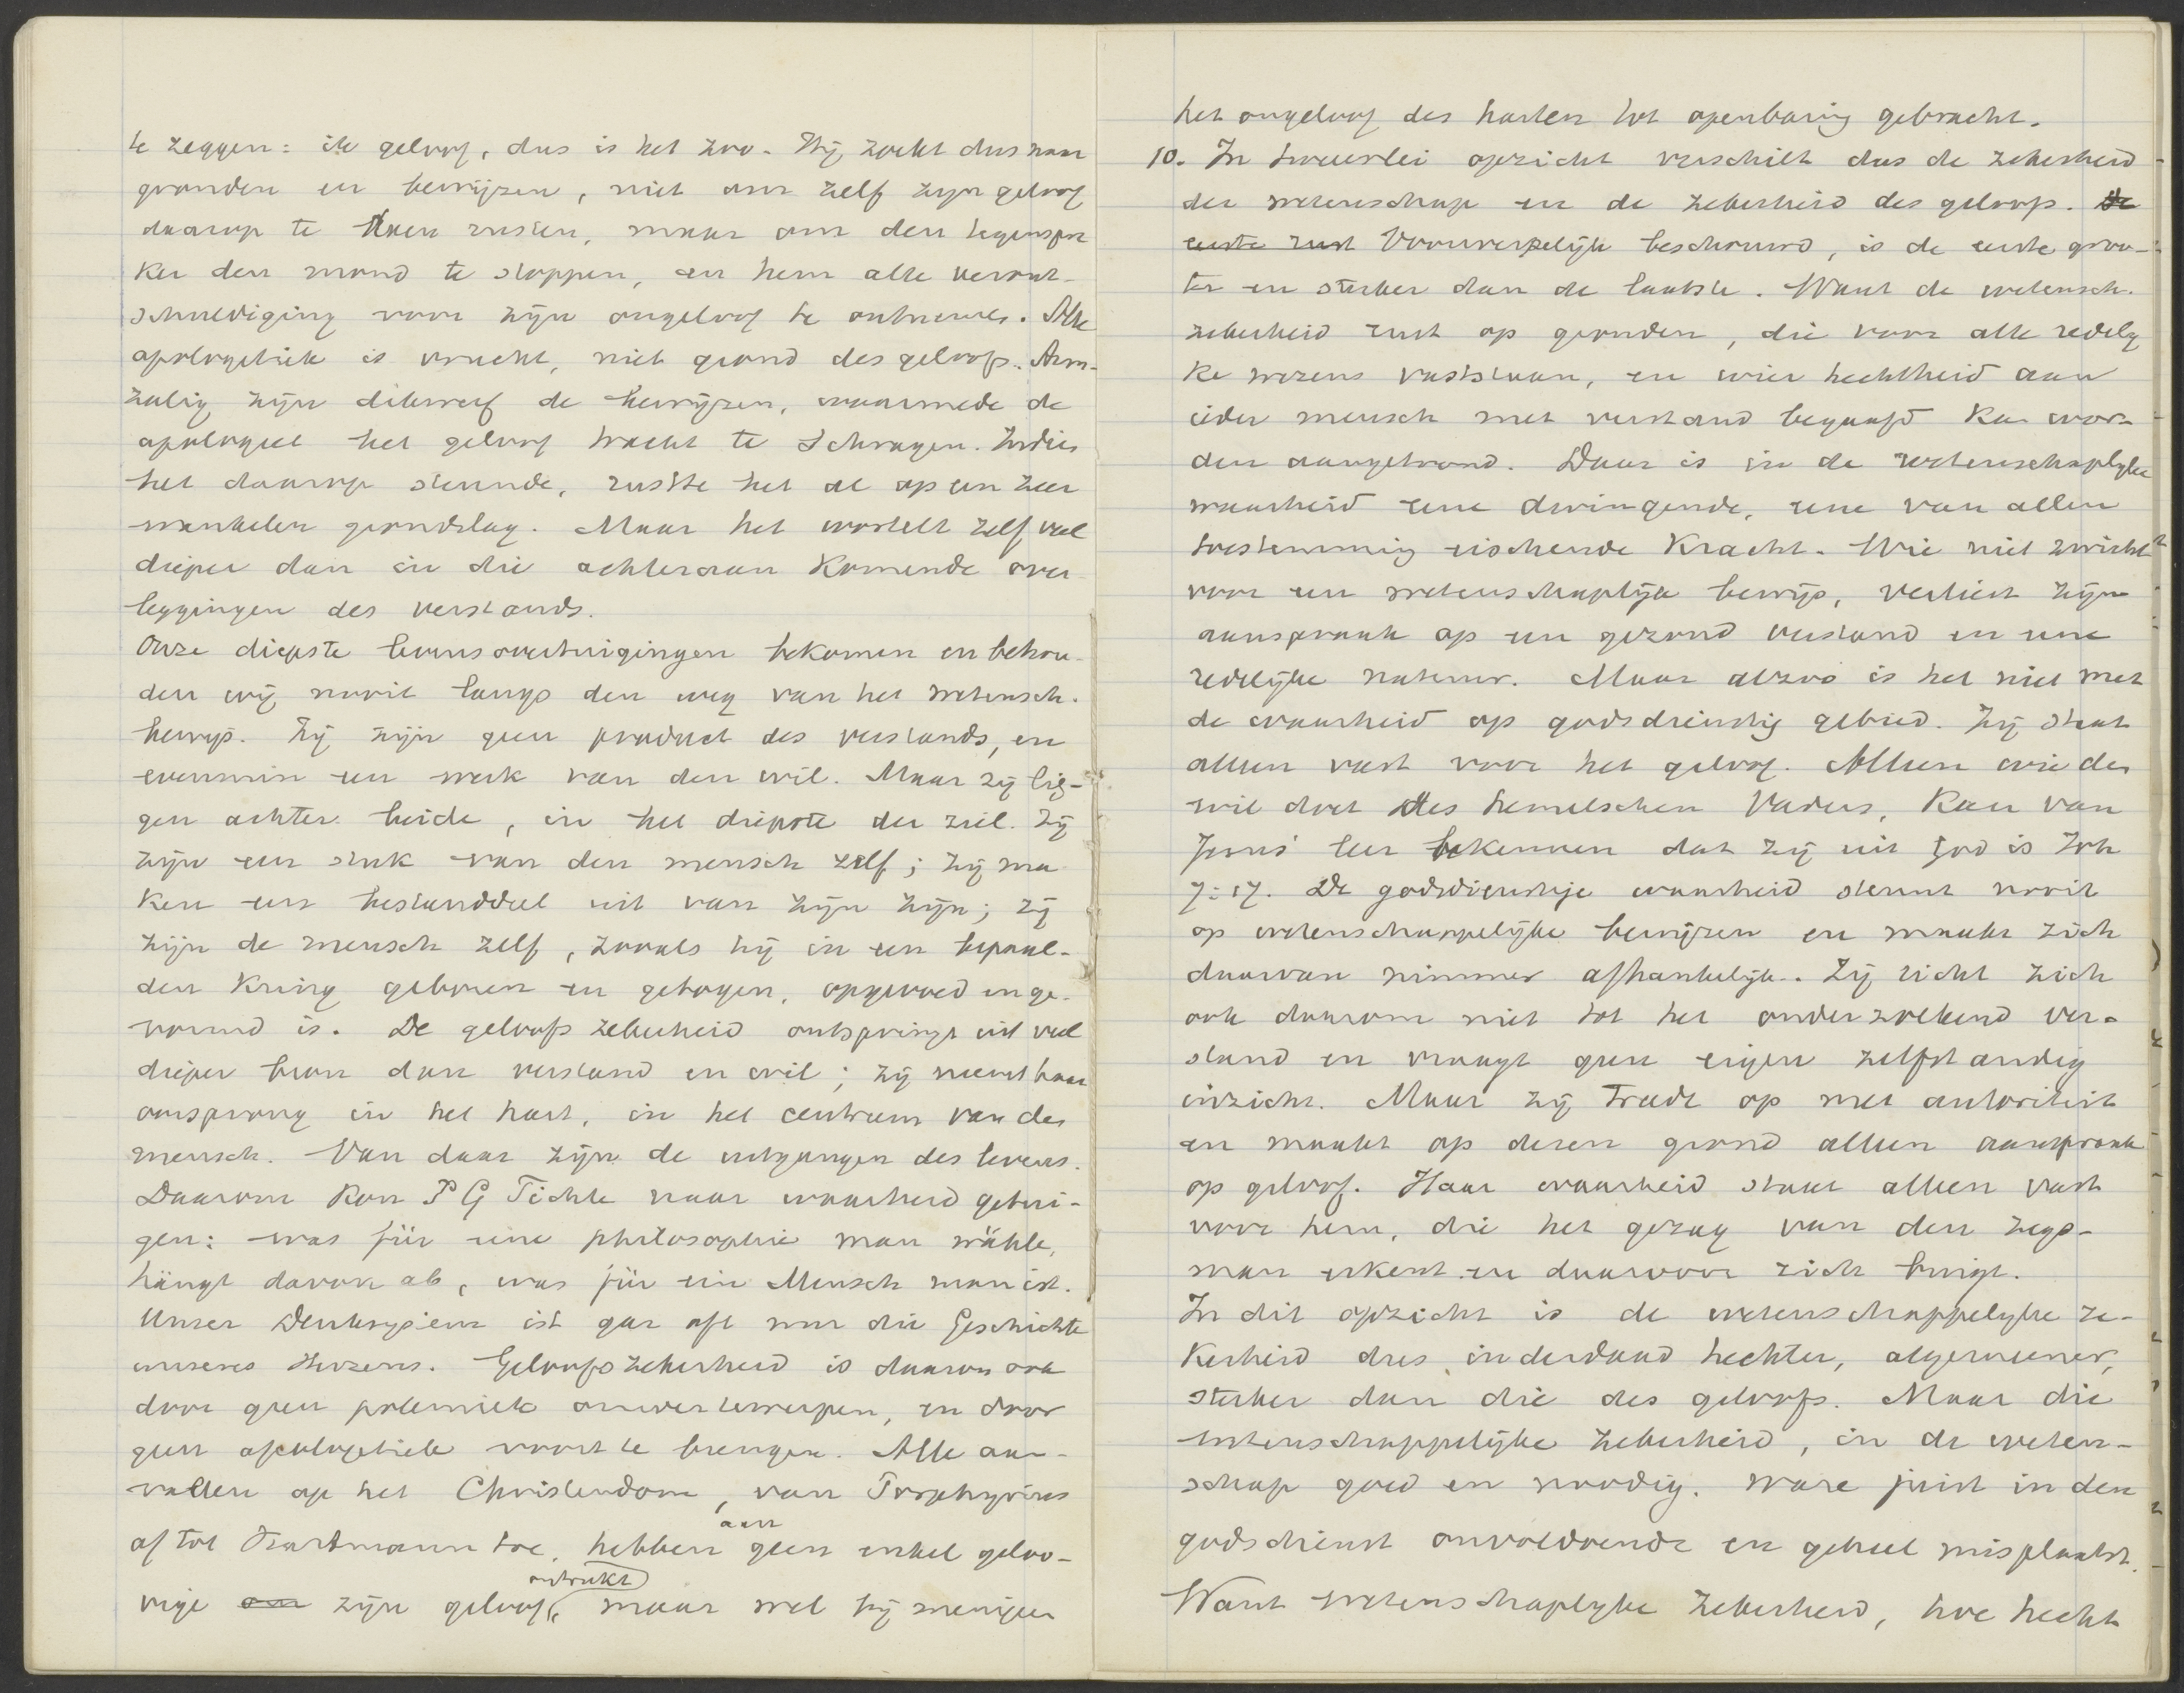 te zeggen: ik geloof, dus is het zoo. Hij zoekt dus naar
gronden en bewijzen, niet om zelf zijn geloof
daarop te doen rusten, maar om den tegenspre
ker den mond te stoppen, en hem alle veront-
schuldiging voor zijn ongeloof te ontnemen. Alle
apologetiek is vrucht, niet grond des geloofs. Arm-
zalig zijn dikwerf de bewijzen, waarmede de
apologeet het geloof tracht te schragen. Indien
het daarop steunde, rustte het al op een zeer
wankelen grondslag. Maar het wortelt zelf veel
dieper dan in die achteraan komende over
leggingen des verstands.
Onze diepste levensovertuigingen bekomen en behou-
den wij nooit langs den weg van het wetensch.
bewijs. Zij zijn geen product des verstands, en
evenmin een werk van den wil. Maar zij lig-
gen achter beide, in het diepste der ziel. Zij
zijn een stuk van den mensch zelf; zij ma
ken een bestanddeel uit van zijn zijn; zij
zijn de mensch zelf, zooals hij in een bepaal-
den kring geboren en getogen, opgevoed en ge-
vormd is. De geloofszekerheid ontspringt uit veel
dieper bron dan verstand en wil; zij neemt haar
oorsprong in het hart, in het centrum van den
mensch. Van daar zijn de uitgangen des levens.
Daarom kon J G Fichte naar waarheid getui-
gen: was für eine philosophie man wähle,
hängt davon ab, was für ein Mensch man ist.
Unser Denksystem ist gar oft nur die Geschichte
unseres Herzens. Geloofszekerheid is daarom ook
door geen polemiek omver te werpen, en door
geen apologetiek voort te brengen. Alle aan-
vallen op het Christendom, van Porphyrius
af tot Hartmann toe, hebben aan geen enkel geloo-
vige aan zijn geloof ontrukt, maar wel bij menigeen
het ongeloof des harten tot openbaring gebracht.
10. In tweeërlei opzicht verschilt dus de zekerheid
der wetenschap en de zekerheid des geloofs. De
eerste rust Voorwerpelijk beschouwd, is de eerste groo-
ter en sterker dan de laatste. Want de wetensch.
zekerheid rust op gronden, die voor alle redelij
ke wezens vaststaan, en wier hechtheid aan
ieder mensch met verstand begaafd kan wor-
den aangetoond. Daar is in de wetenschaplijke
waarheid eene dwingende, eene van allen
toestemming eischende kracht. Wie niet zwicht
voor een wetenschaplijk bewijs, verliest zijn
aanspraak op een gezond verstand en eene
redelijke natuur. Maar alzoo is het niet met
de waarheid op godsdienstig gebied. Zij staat
alleen vast voor het geloof. Alleen wie den
wil doet des hemelschen Vaders, kan van
Jezus' leer bekennen dat zij uit God is Joh
7:17. De godsdienstige waarheid steunt nooit
op wetenschappelijke bewijzen en maakt zich
daarvan nimmer afhankelijk. Zij richt zich
ook daarom niet tot het onderzoekend ver-
stand en vraagt geen eigen zelfstandig
inzicht. Maar zij treedt op met autoriteit
en maakt op dezen grond alleen aanspraak
op geloof. Haar waarheid staat alleen vast
voor hem, die het gezag van den zegs-
man erkent en daarvoor zich buigt.
In dit opzicht is de wetenschappelijke ze-
kerheid dus inderdaad hechter, algemeener,
sterker dan die des geloofs. Maar die
wetenschappelijke zekerheid, in de weten-
schap goed en noodig, ware juist in den
godsdienst onvoldoende en geheel misplaatst.
Want wetenschaplijke zekerheid, hoe hecht